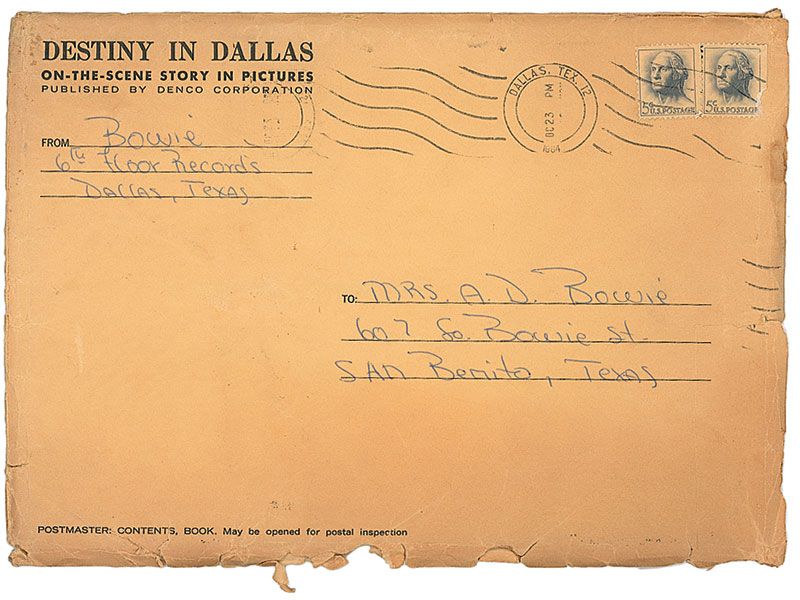 DESTINY IN DALLAS
ON-THE-SCENE STORY IN PICTURES
PUBLISHED BY DENCO CORPORATION
DALLAS, TEX. 12
PM
OC 23
1964
5¢ U.S. POSTAGE
5¢ U.S. POSTAGE
FROM Bowie
6th Floor Records
Dallas, Texas
TO: MRS. A. D. Bowie
607 So. Bowie St.
SAN Benito, Texas
POSTMASTER: CONTENTS, BOOK. May be opened for postal inspection